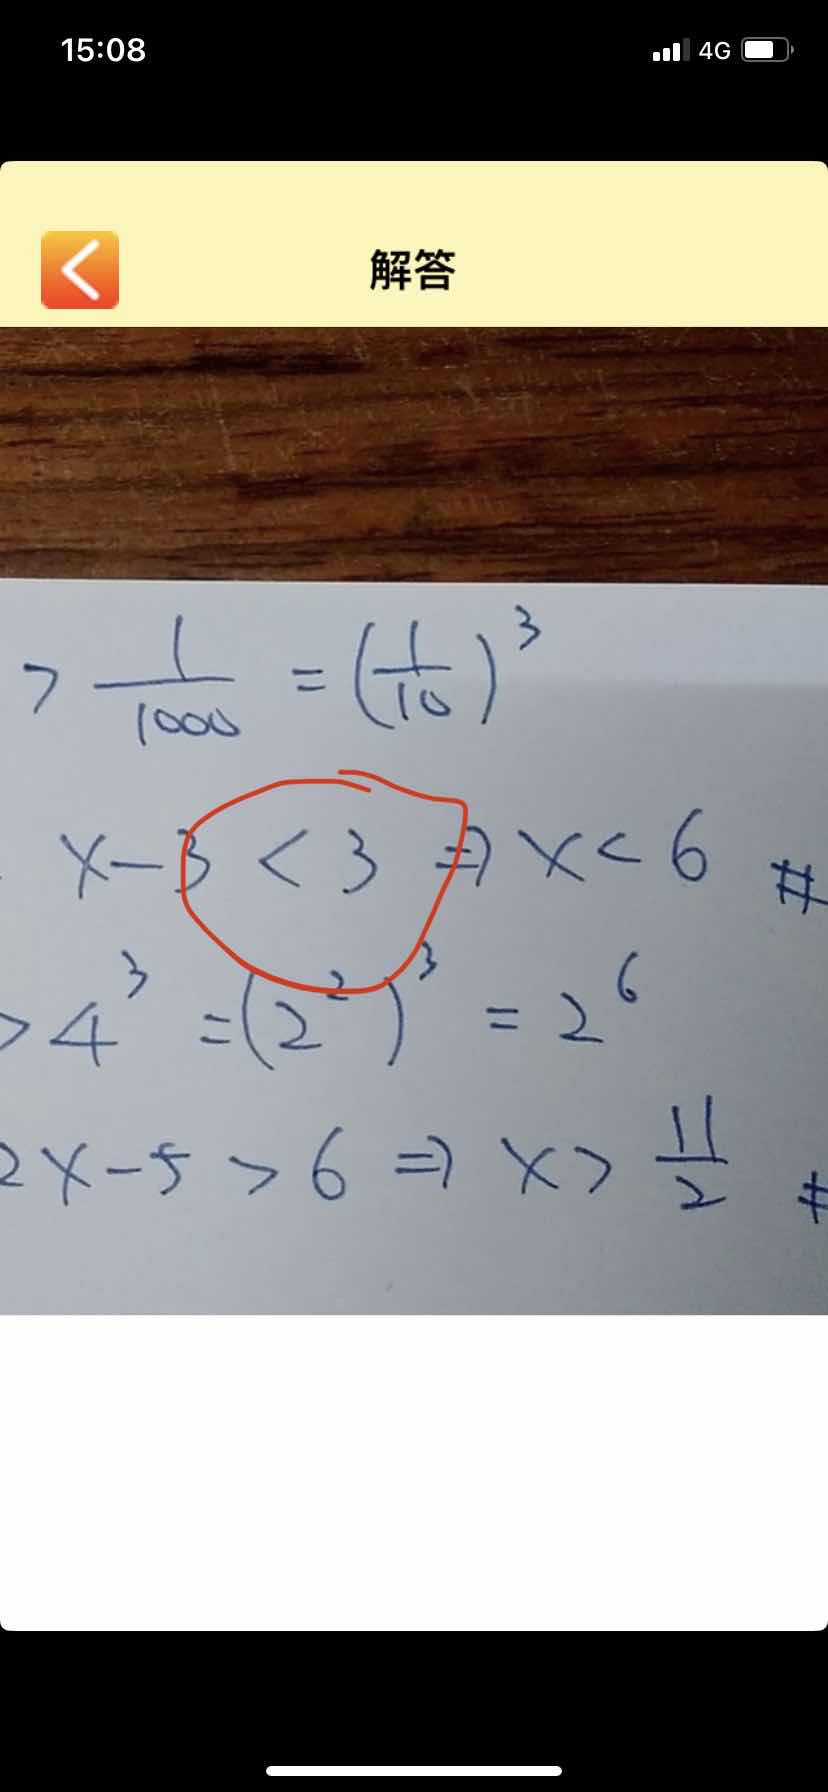 15:08 4G
解答
> 1/1000 = (1/10)³
x-3 < 3 ⇒ x < 6 #
> 4³ = (2²)³ = 2⁶
2x-5 > 6 ⇒ x > 11/2 #